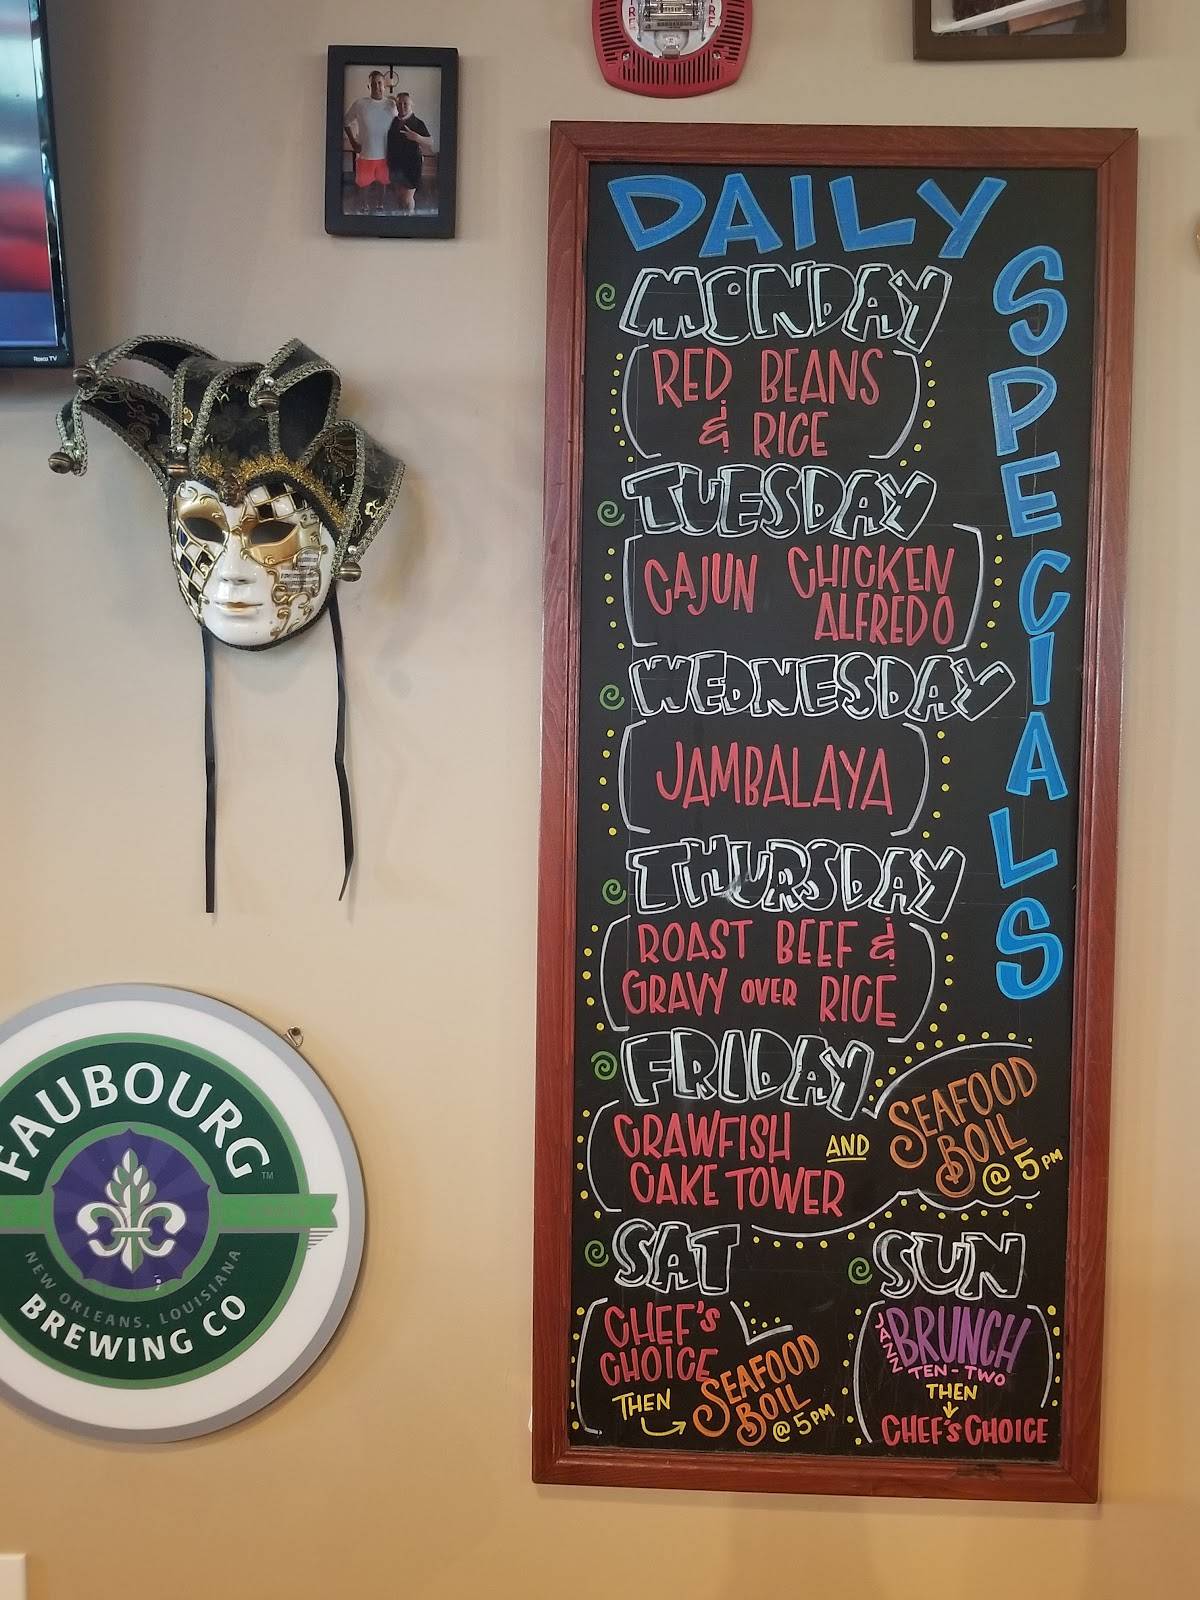 Roku TV
FIRE
DAILY
SPECIALS
MONDAY
RED BEANS
& RICE
TUESDAY
CAJUN CHICKEN
ALFREDO
WEDNESDAY
JAMBALAYA
THURSDAY
ROAST BEEF &
GRAVY OVER RICE
FRIDAY
CRAWFISH
CAKE TOWER
AND
SEAFOOD
BOIL
@ 5PM
SAT
CHEF'S
CHOICE
THEN
SEAFOOD
BOIL
@ 5PM
SUN
JAZZ
BRUNCH
TEN-TWO
THEN
CHEF'S CHOICE
FAUBOURG™
NEW ORLEANS, LOUISIANA
BREWING CO